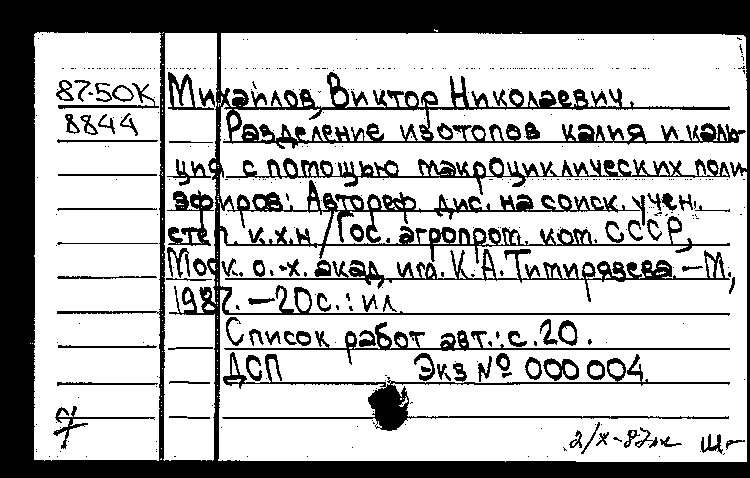 87-50К Михайлов, Виктор Николаевич.
8844 Разделение изотопов калия и каль-
ция с помощью макроциклических поли-
эфиров: Автореф. дис. на соиск. учен.
степ. к.х.н. / Гос. агропром. ком. СССР,
Моск. с.-х. акад. им. К.А. Тимирязева. – М.,
1987. – 20 с. : ил.
Список работ авт.: с. 20.
ДСП Экз № 000004
2/X-87